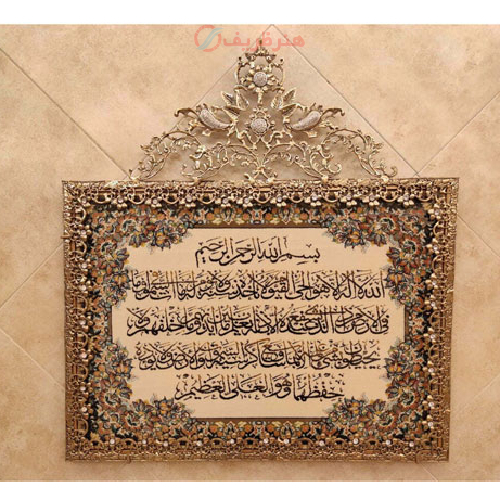 هنر ظریف
بسم الله الرحمن الرحیم
الله لا اله الا هو الحی القیوم لا تأخذه سنة ولا نوم له ما فی السموات وما
فی الارض من ذا الذی یشفع عنده الا باذنه یعلم ما بین ایدیهم وما خلفهم ولا
یحیطون بشیء من علمه الا بما شاء وسع کرسیه السموات والارض ولا یؤده
حفظهما وهو العلی العظیم